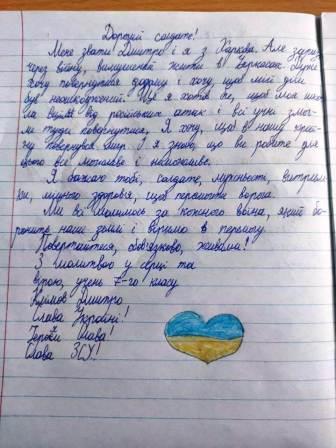 Дорогий солдате!
Мене звати Дмитро і я з Харкова. Але зараз
через війну, вимушений жити в Черкасах. Дуже
хочу повернутися додому і хочу, щоб мій дім
був неушкоджений. Ще я хотів би, щоб моя шко-
ла вціліла від російських атак і всі учні змог-
ли туди повернутися. Я хочу, щоб в нашу краї-
ну повернувся мир. І я знаю, що ви робите для
цього все можливе і неможливе.
Я бажаю тобі, солдате, мужності, витрим-
ки, міцного здоров'я, щоб перемогти ворога.
Ми всі молимось за кожного воїна, який бо-
ронить наші землі і віримо в перемогу.
Повертайтися, обов'язково, живими!
З молитвою у серці та
вірою, учень 7-го класу
Климов Дмитро
Слава Україні!
Героям Слава!
Слава ЗСУ!